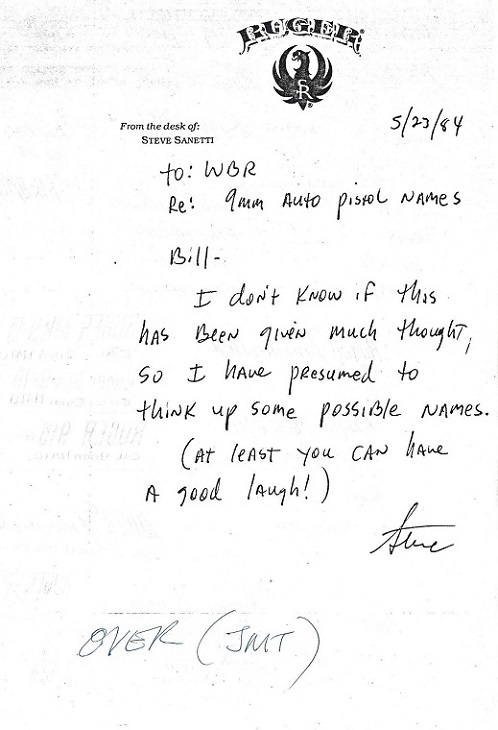 RUGER
SR
®
From the desk of:
STEVE SANETTI
5/23/84
to: WBR
Re: 9mm Auto pistol Names
Bill-
I don't know if this
has been given much thought,
so I have presumed to
think up some possible names.
(At least you can have
a good laugh!)
Steve
OVER (JMT)